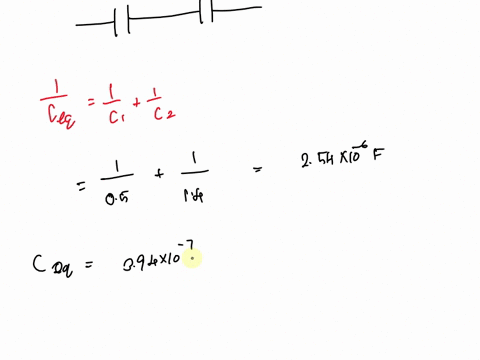 1/Ceq = 1/C1 + 1/C2
= 1/0.5 + 1/1.4 = 2.54×10^-6 F
Ceq = 3.94×10^-7